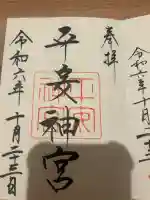 令和六年十月
奉拝
平安神宮
令和六年 十月二十三日